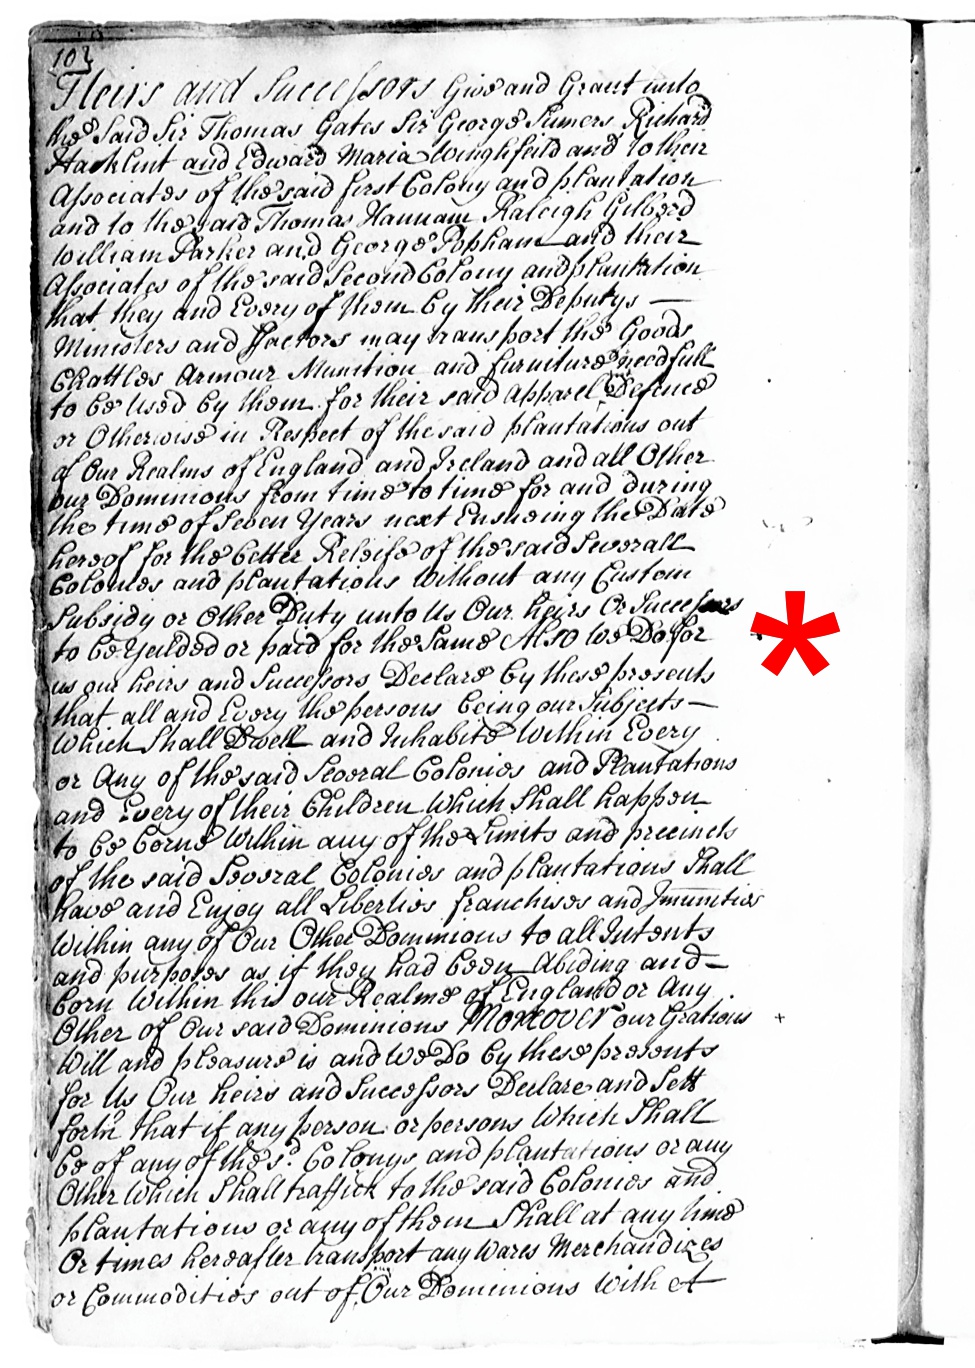 102
Heirs and Successors Give and Grant unto
the Said Sir Thomas Gates Sir George Sumers Richard
Hacklint and Edward Maria Winghfeild and to their
Associates of the said first Colony and plantation
and to the said Thomas Hannam Raleigh Gilberd
William Parker and George Popham and their
Associates of the said Second Colony and plantation
that they and Every of them by their Deputys —
Ministers and Factors may transport the Goods
Chattles Armour Munition and furniture needfull
to be Used by them for their said Apparel Defence
or Otherwise in Respect of the said plantations out
of Our Realms of England and Ireland and all Other
our Dominions from time to time for and during
the time of Seven Years next Ensueing the Date
hereof for the better Releife of the said Severall
Colonies and plantations Without any Custom
Subsidy or Other Duty unto Us Our heirs Or Successors
to be Yeilded or paid for the Same Also We Do for
us our heirs and Successors Declare by these presents
that all and Every the persons being our Subjects —
Which Shall Dwell and Inhabite Within Every
or Any of the said Several Colonies and Plantations
and Every of their Children Which Shall happen
to be borne Within any of the Limits and precincts
of the said Several Colonies and plantations Shall
have and Enjoy all Liberties franchises and Immunities
Within any of Our Other Dominions to all Intents
and purposes as if they had been Abiding and —
born Within this our Realme of England or Any
Other of Our said Dominions Moreover our Gratious +
Will and pleasure is and We Do by these presents
for Us Our heirs and Successors Declare and Sett
forth that if any person or persons Which Shall
be of any of the sd. Colonys and plantations or any
Other Which Shall traffick to the said Colonies and
plantations or any of them Shall at any time
Or times hereafter transport any Wares Merchandizes
or Commodities out of any Our Dominions With A